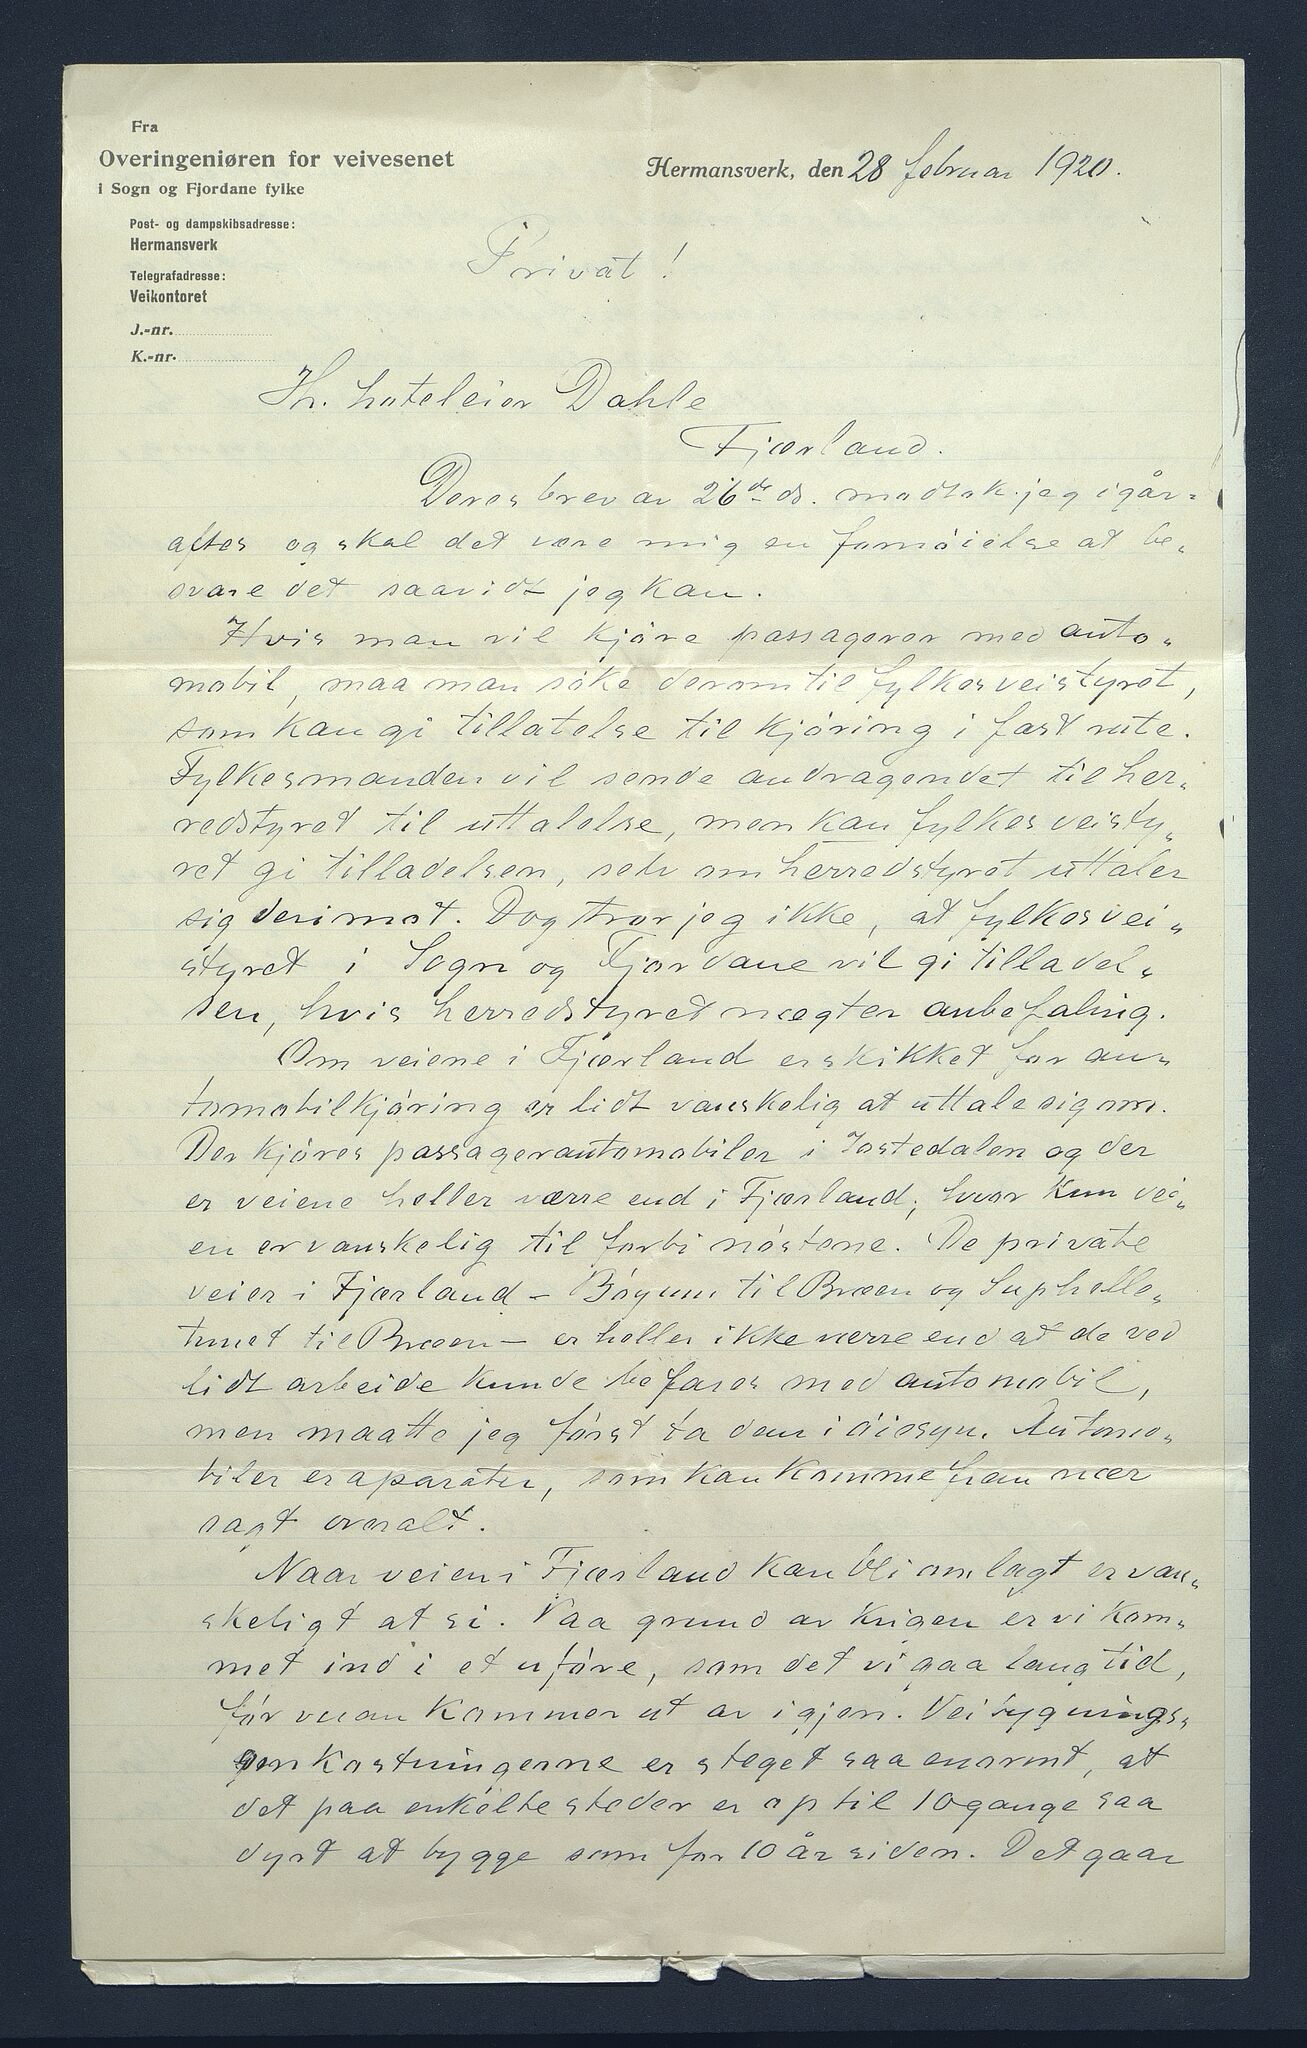 Fra
Overingeniøren for veivesenet
i Sogn og Fjordane fylke
Post- og dampskibsadresse:
Hermansverk
Telegrafadresse:
Veikontoret
J.-nr.
K.-nr.
Hermansverk, den 28 februar 1920.
Privat!
Hr. hoteleier Dahle
Fjærland.
Deres brev av 26de ds. modtok jeg igår-
aftes og skal det være mig en fornøielse at be-
svare det saavidt jeg kan.
Hvis man vil kjøre passagerer med auto-
mobil, maa man søke derom til fylkesveistyret,
som kan gi tillatelse til kjøring i fast rute.
Fylkesmanden vil sende andragendet til her-
redstyret til uttalelse, men kan fylkesveisty-
ret gi tilladelsen, selv om herredstyret uttaler
sig derimot. Dog tror jeg ikke, at fylkesvei-
styret i Sogn og Fjordane vil gi tilladel-
sen, hvis herredstyret nægter anbefaling.
Om veiene i Fjærland er skikket for au-
tomobilkjøring er lidt vanskelig at uttale sig om.
Der kjøres passagerautomobiler i Jostedalen og der
er veiene heller værre end i Fjærland, hvor kun vei-
en er vanskelig til forbi nøstene. De private
veier i Fjærland - Bøyum til Bræen og Suphelle-
tunet til Bræen - er heller ikke værre end at de ved
lidt arbeide kunde befares med automobil,
men maatte jeg først ta dem i øiesyn. Automo-
biler er aparater, som kan komme frem nær
sagt overalt.
Naar veien i Fjærland kan bli omlagt er van-
skeligt at si. Paa grund av krigen er vi kom-
met ind i et uføre, som det vi gaa lang tid,
før man kommer ut av igjen. Veibygnings-
omkostningerne er steget saa enormt, at
det paa enkelte steder er op til 10 gange saa
dyrt at bygge som for 10 år siden. Det gaar